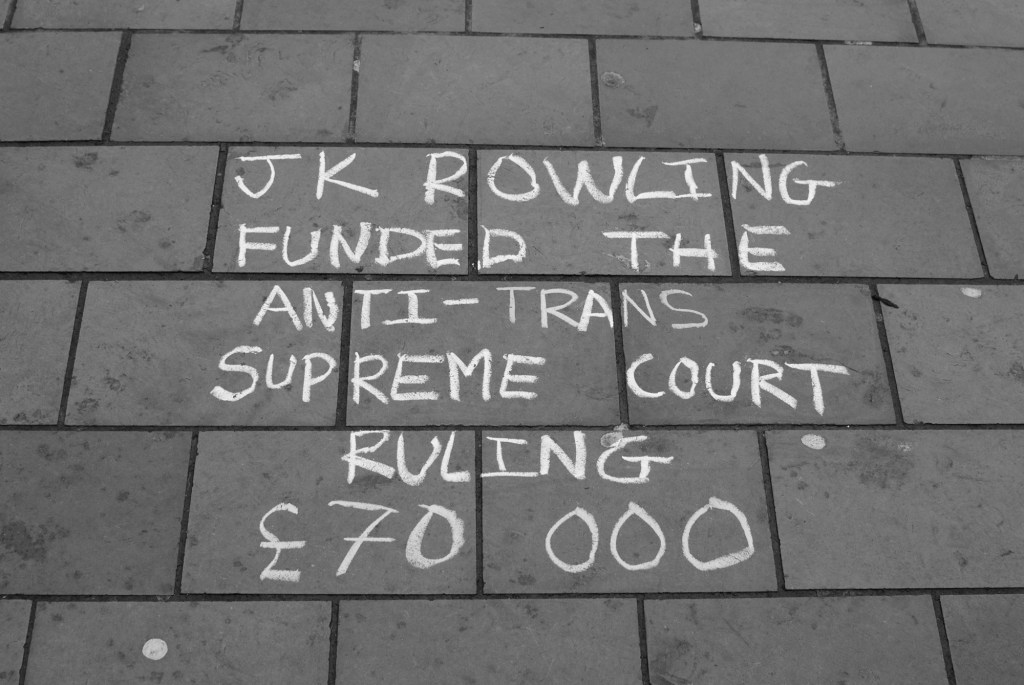 JK ROWLING
FUNDED THE
ANTI-TRANS
SUPREME COURT
RULING
£70 000